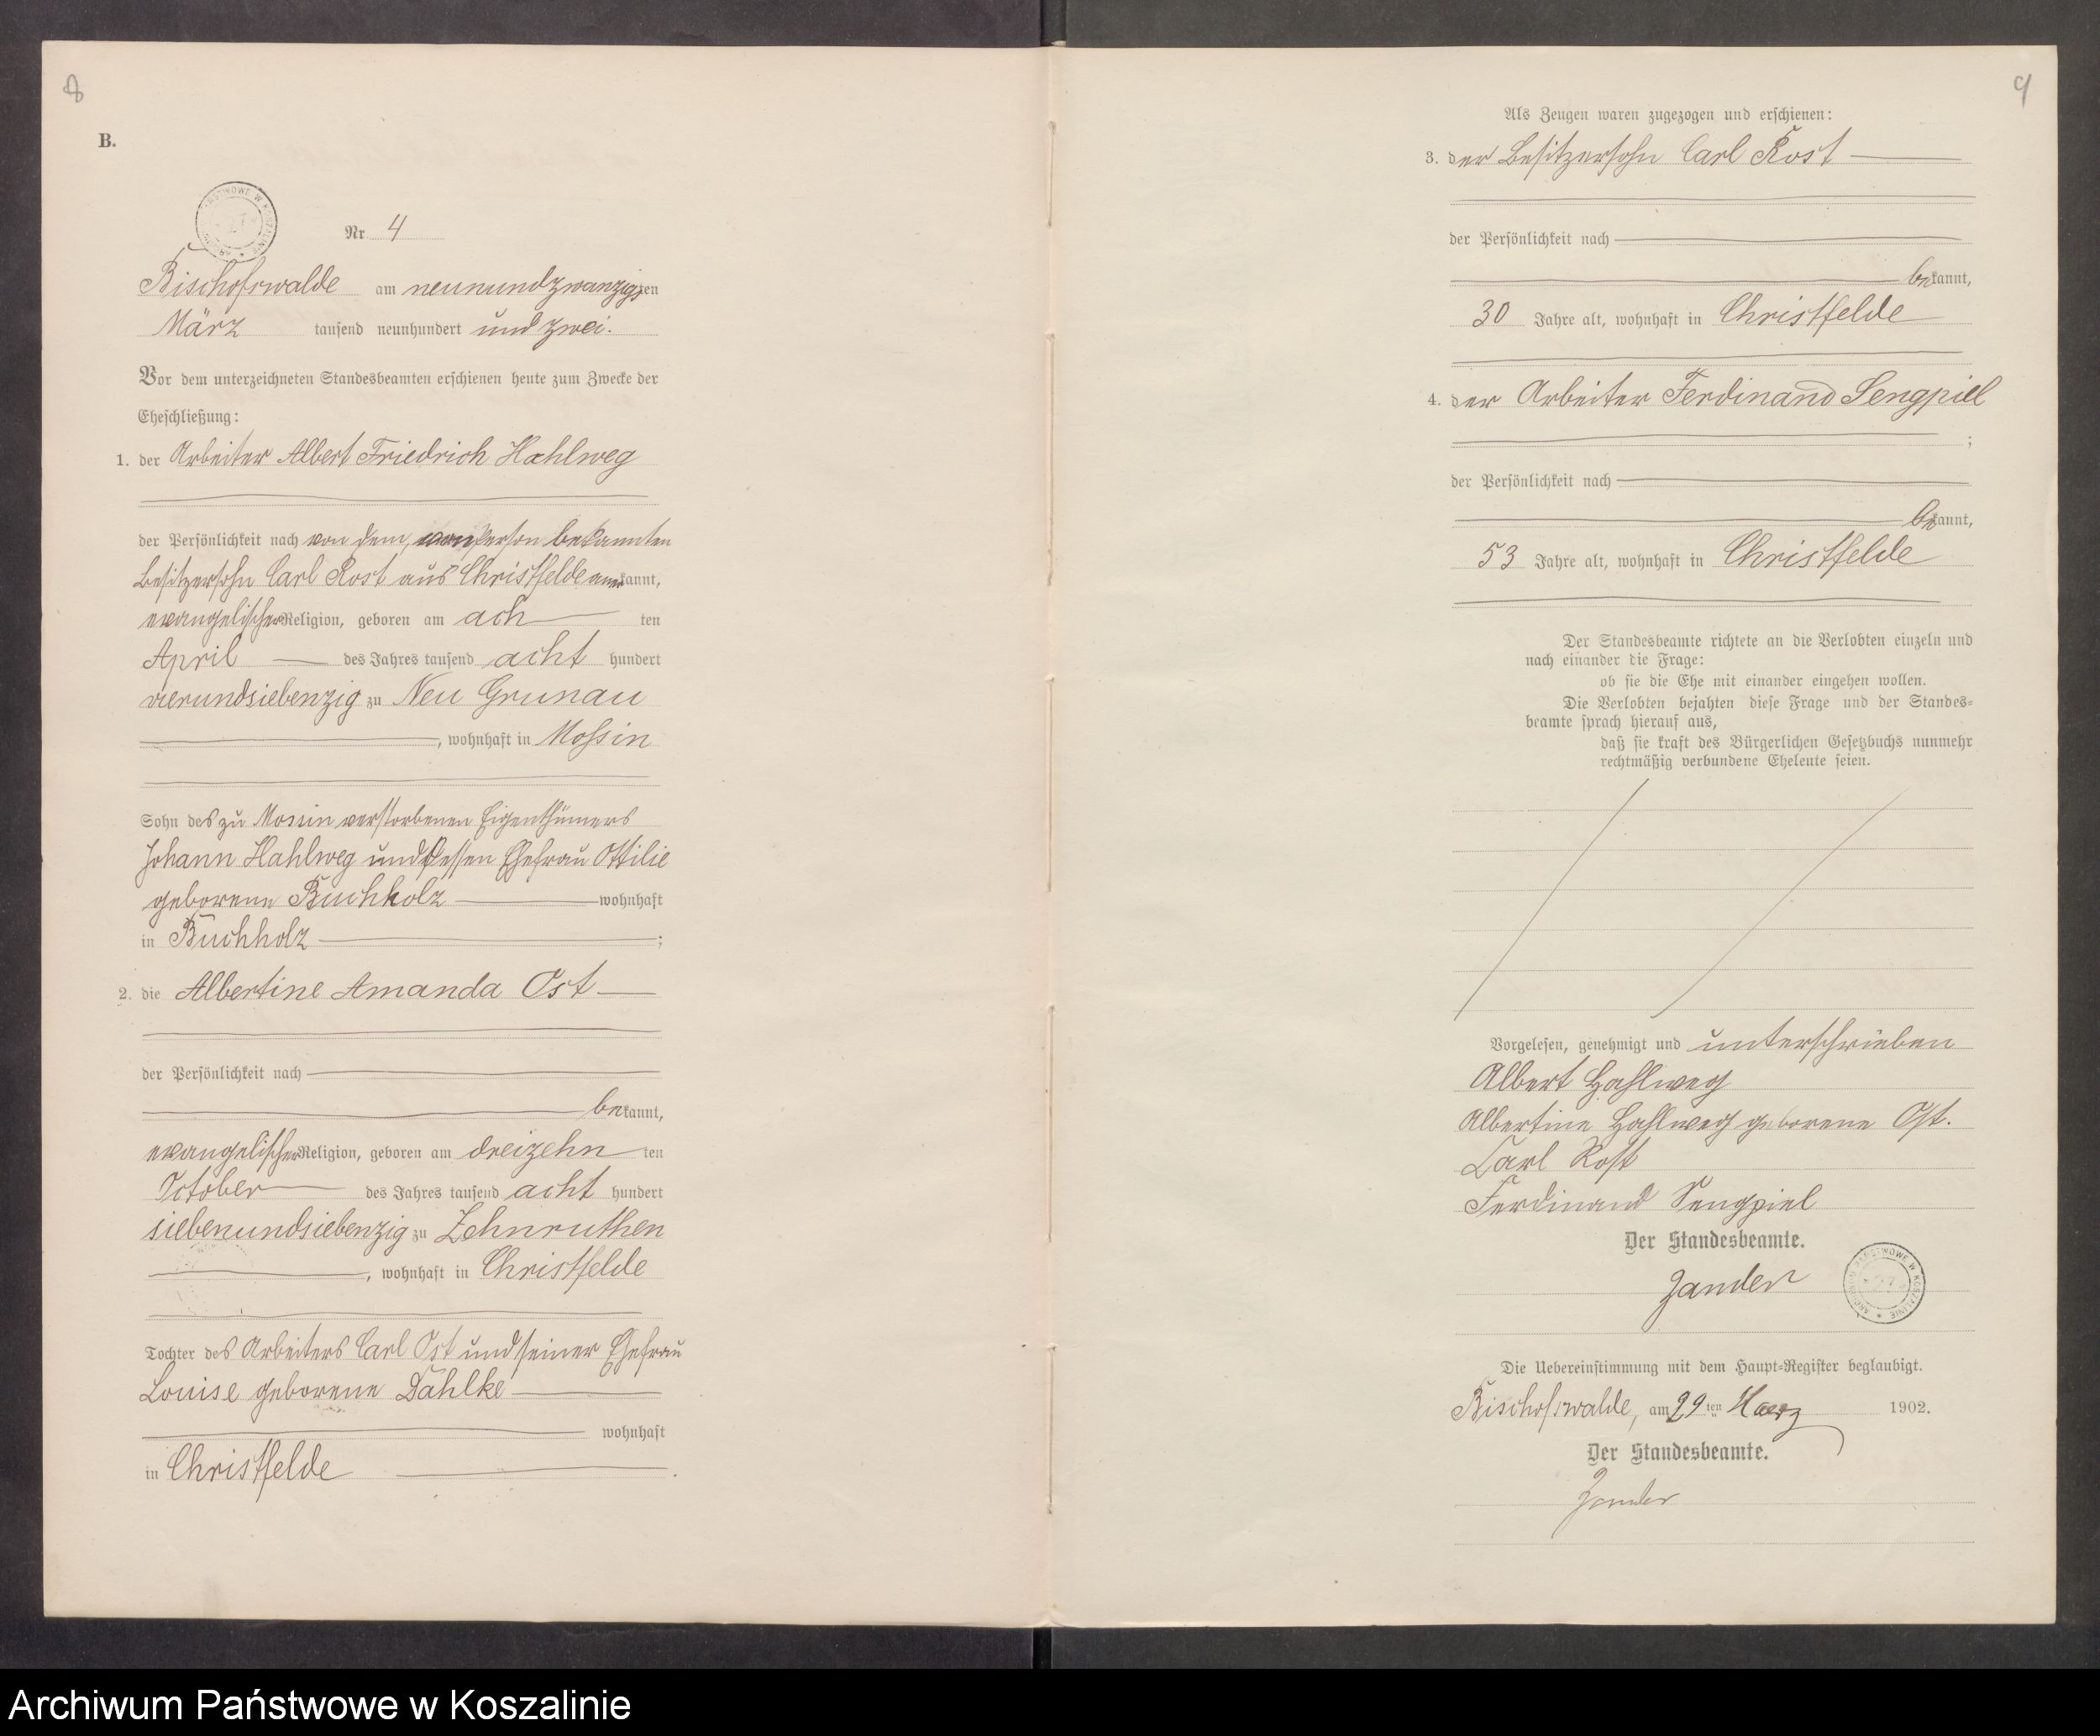 8
B.
Nr 4
Bischofswalde am neunundzwanzigsten
März tausend neunhundert und zwei.
Vor dem unterzeichneten Standesbeamten erschienen heute zum Zwecke der
Eheschließung:
1. der Arbeiter Albert Friedrich Hahlweg
der Persönlichkeit nach von dem, von Person bekannten
Besitzersohn Carl Rost aus Christfelde anerkannt,
evangelischer Religion, geboren am achten
April des Jahres tausend acht hundert
vierundsiebenzig zu Neu Grunau
, wohnhaft in Mossin
Sohn des zu Mossin verstorbenen Eigenthümers
Johann Hahlweg und dessen Ehefrau Ottilie
geborene Buchholz wohnhaft
in Buchholz ;
2. die Albertine Amanda Ost
der Persönlichkeit nach
bekannt,
evangelischer Religion, geboren am dreizehnten
October des Jahres tausend acht hundert
siebenundsiebenzig zu Zehnruthen
, wohnhaft in Christfelde
Tochter des Arbeiters Carl Ost und seiner Ehefrau
Louise geborene Dahlke
wohnhaft
in Christfelde .
9
Als Zeugen waren zugezogen und erschienen:
3. der Besitzersohn Carl Rost
der Persönlichkeit nach
bekannt,
30 Jahre alt, wohnhaft in Christfelde
4. der Arbeiter Ferdinand Sengpiel
;
der Persönlichkeit nach
bekannt,
53 Jahre alt, wohnhaft in Christfelde
Der Standesbeamte richtete an die Verlobten einzeln und
nach einander die Frage:
ob sie die Ehe mit einander eingehen wollen.
Die Verlobten bejahten diese Frage und der Standes-
beamte sprach hierauf aus,
daß sie kraft des Bürgerlichen Gesetzbuchs nunmehr
rechtmäßig verbundene Eheleute seien.
Vorgelesen, genehmigt und unterschrieben
Albert Hahlweg
Albertine Hahlweg geborene Ost.
Carl Rost
Ferdinand Sengpiel
Der Standesbeamte.
Zander
ARCHIWUM PAŃSTWOWE W KOSZALINIE
Die Uebereinstimmung mit dem Haupt-Register beglaubigt.
Bischofswalde, am 29ten Maerz 1902.
Der Standesbeamte.
Zander
Archiwum Państwowe w Koszalinie